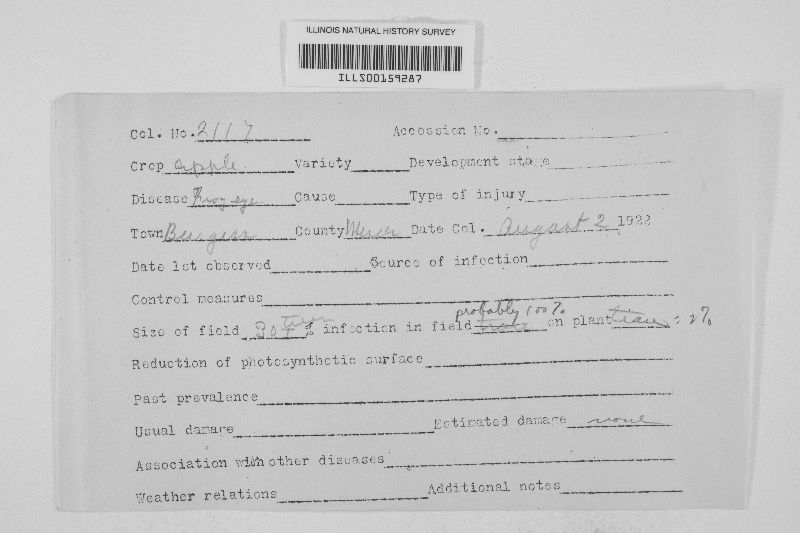 ILLINOIS NATURAL HISTORY SURVEY
ILLS00159287
Col. No. 2117 Accession No.
Crop apple Variety Development stage
Disease Frog eye Cause Type of injury
Town Burgess County Mercer Date Col. August 2 1922
Date 1st observed Source of infection
Control measures
probably 100%
Size of field 30+ trees % infection in field on plant = 2%
Reduction of photosynthetic surface
Past prevalence
Usual damage Estimated damage none
Association with other diseases
Weather relations Additional notes